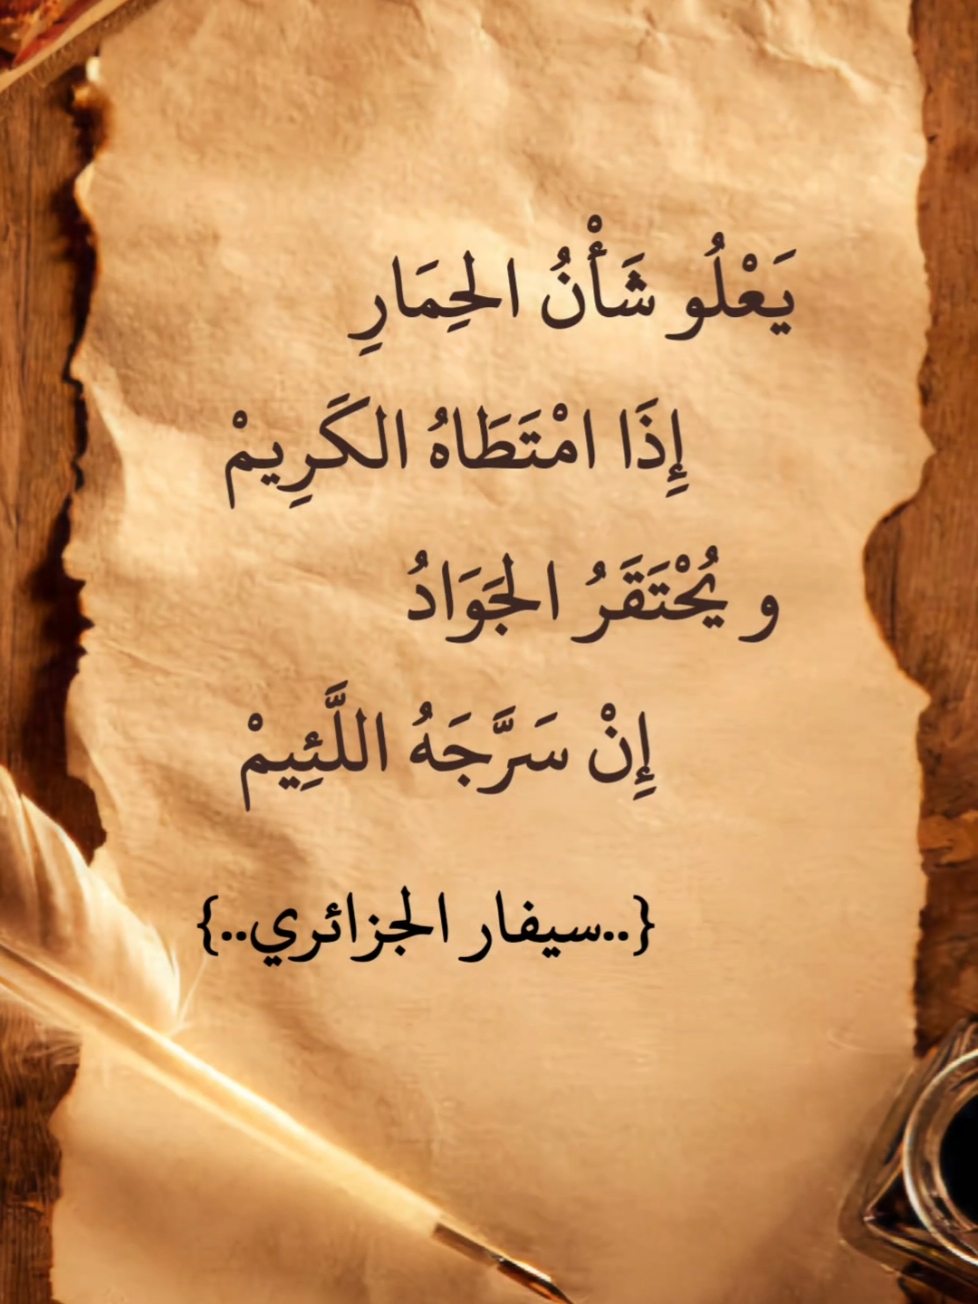 يَعْلُو شَأْنُ الحِمَارِ
إِذَا امْتَطَاهُ الكَرِيمْ
و يُحْتَقَرُ الجَوَادُ
إِنْ سَرَّجَهُ اللَّئِيمْ
{..سيفار الجزائري..}